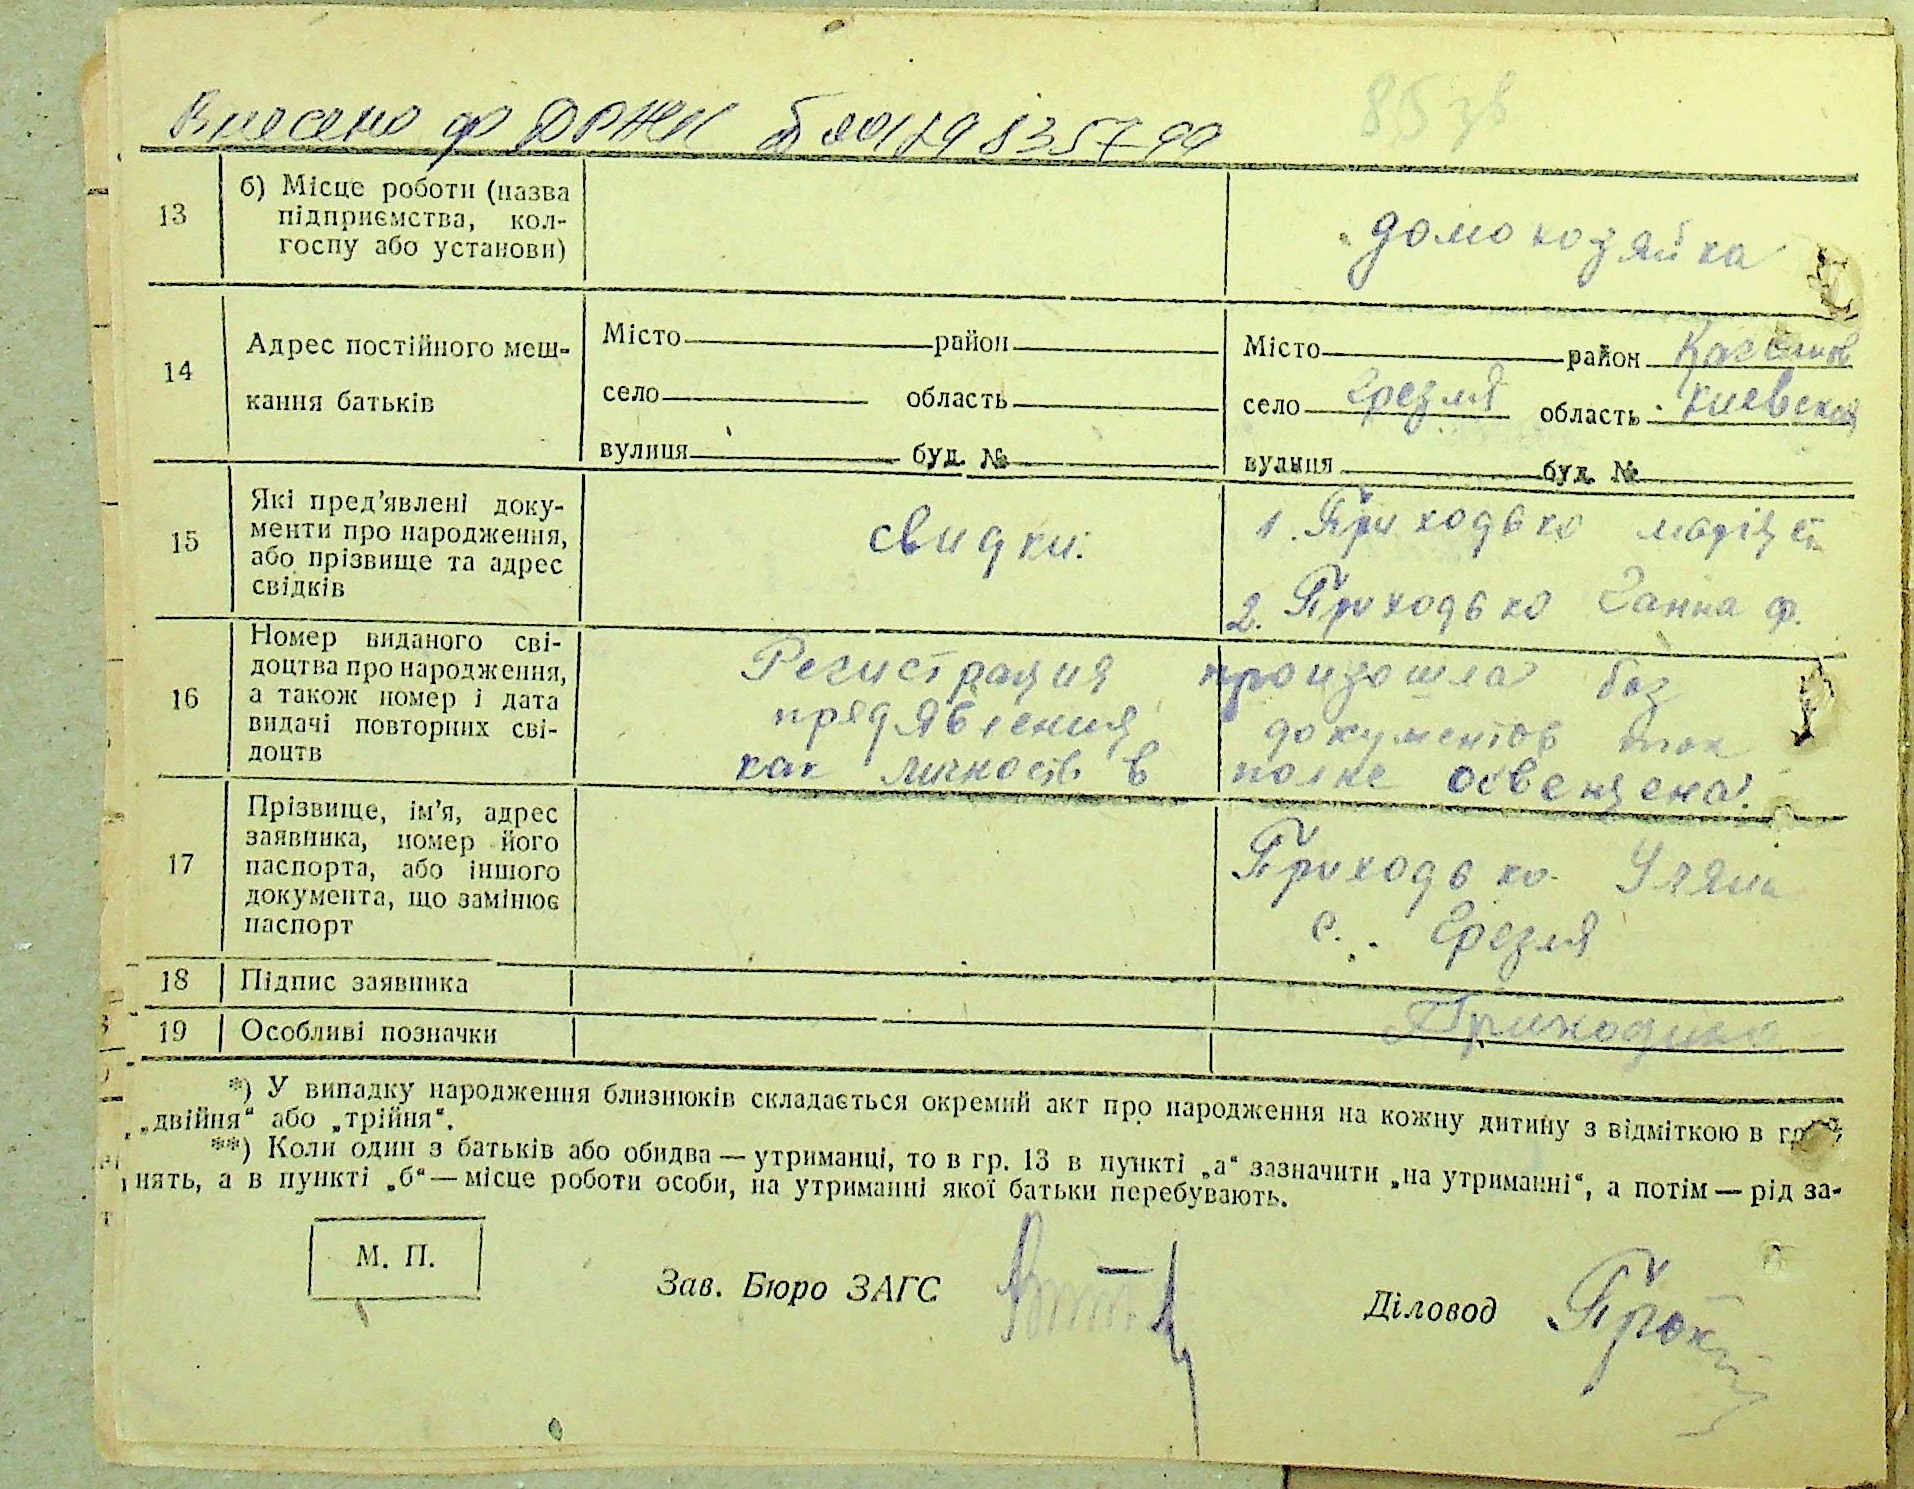 85 зв
Внесено ф ДРЖН
13 б) Місце роботи (назва
підприємства, кол-
госпу або установи)
домохозяйка
14 Адрес постійного меш-
кання батьків
Місто район Місто район
село область село Ерезля область Киевская
вулиця буд. № вулиця буд. №
15 Які пред’явлені доку-
менти про народження,
або прізвище та адрес
свідків
свидки.
1. Приходько Марія
2. Приходько Ганна Ф.
16 Номер виданого сві-
доцтва про народження,
а також номер і дата
видачі повторних сві-
доцтв
Регистрация произошла без
предявления документов так
как личность в полне освещена.
17 Прізвище, ім’я, адрес
заявника, номер його
паспорта, або іншого
документа, що замінює
паспорт
Приходько Уляна
с. Ерезля
18 Підпис заявника
Приходько
19 Особливі позначки
*) У випадку народження близнюків складається окремий акт про народження на кожну дитину з відміткою в
„двійня“ або „трійня“.
**) Коли один з батьків або обидва — утриманці, то в гр. 13 в пункті „а“ зазначити „на утриманні“, а потім — рід за-
нять, а в пункті „б“ — місце роботи особи, на утриманні якої батьки перебувають.
М. П.
Зав. Бюро ЗАГС
Діловод